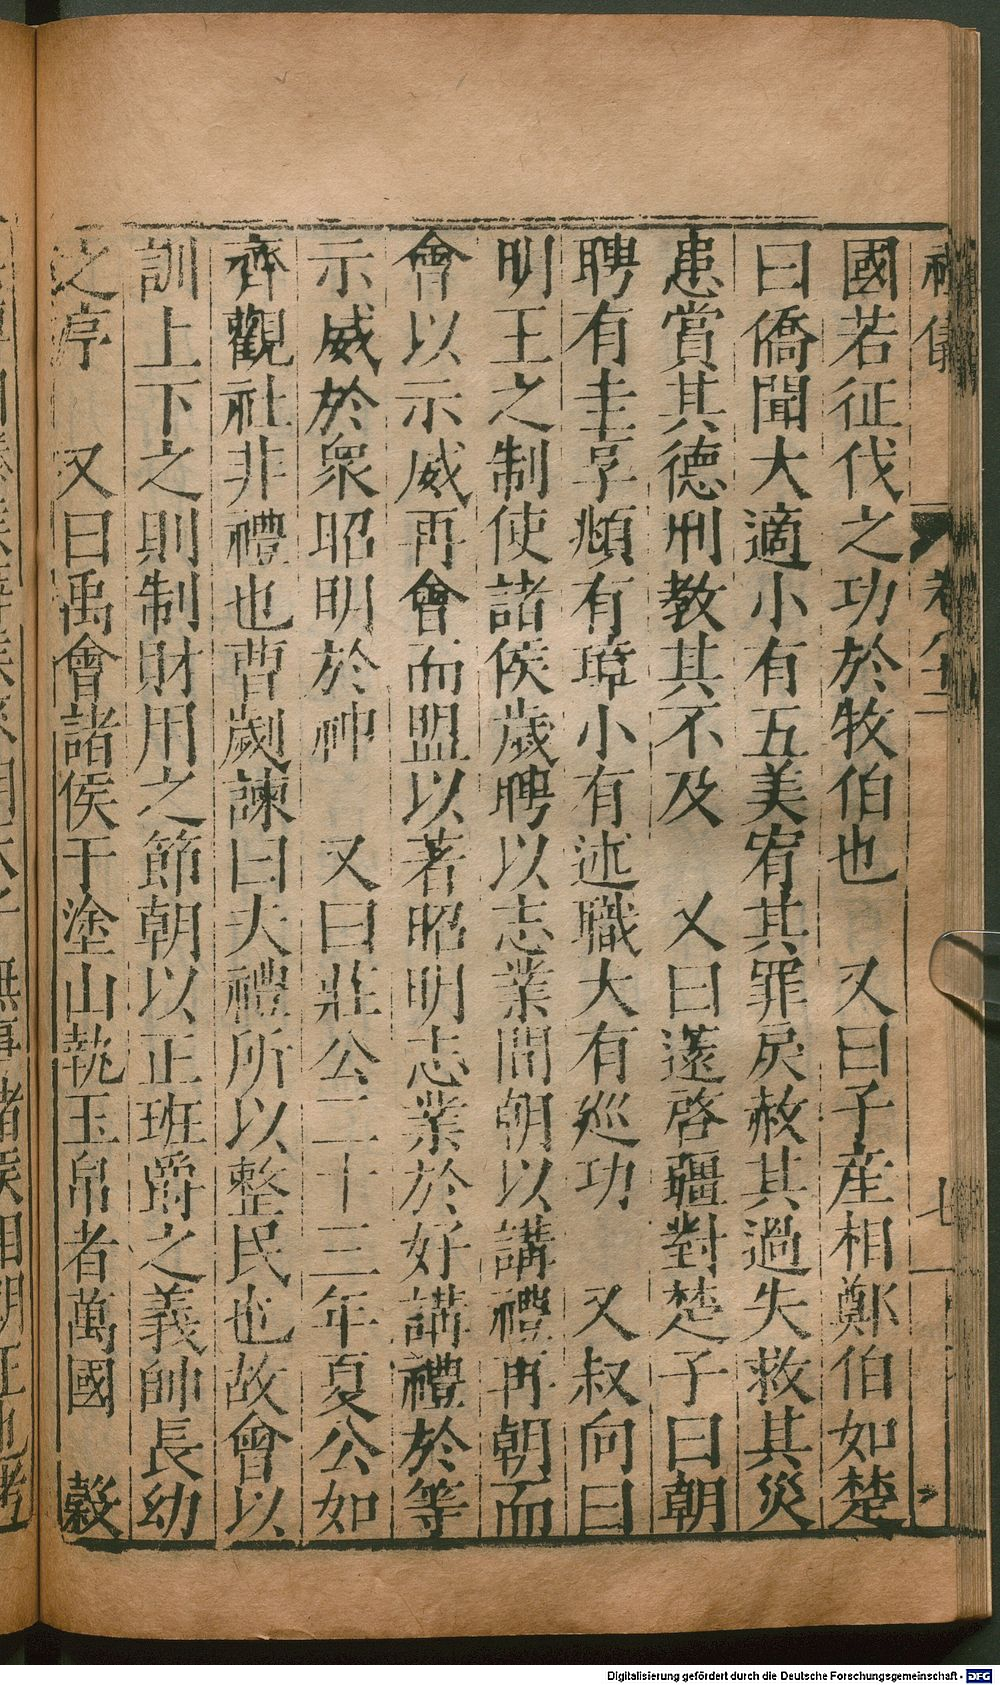 國若征伐之功於牧伯也　又曰子産相鄭伯如楚
曰僑聞大適小有五美宥其罪戾赦其過失救其災
患賞其德刑教其不及　又曰薳啓疆對楚子曰朝
聘有圭享頫有璋小有述職大有巡功　又叔向曰
明王之制使諸侯歲聘以志業間朝以講禮再朝而
會以示威再會而盟以著昭明志業於好講禮於等
示威於衆昭明於神　又曰莊公二十三年夏公如
齊觀社非禮也曹劌諫曰夫禮所以整民也故會以
訓上下之則制財用之節朝以正班爵之義帥長幼
之序　又曰禹會諸侯于塗山執玉帛者萬國　穀
Digitalisierung gefördert durch die Deutsche Forschungsgemeinschaft - DFG